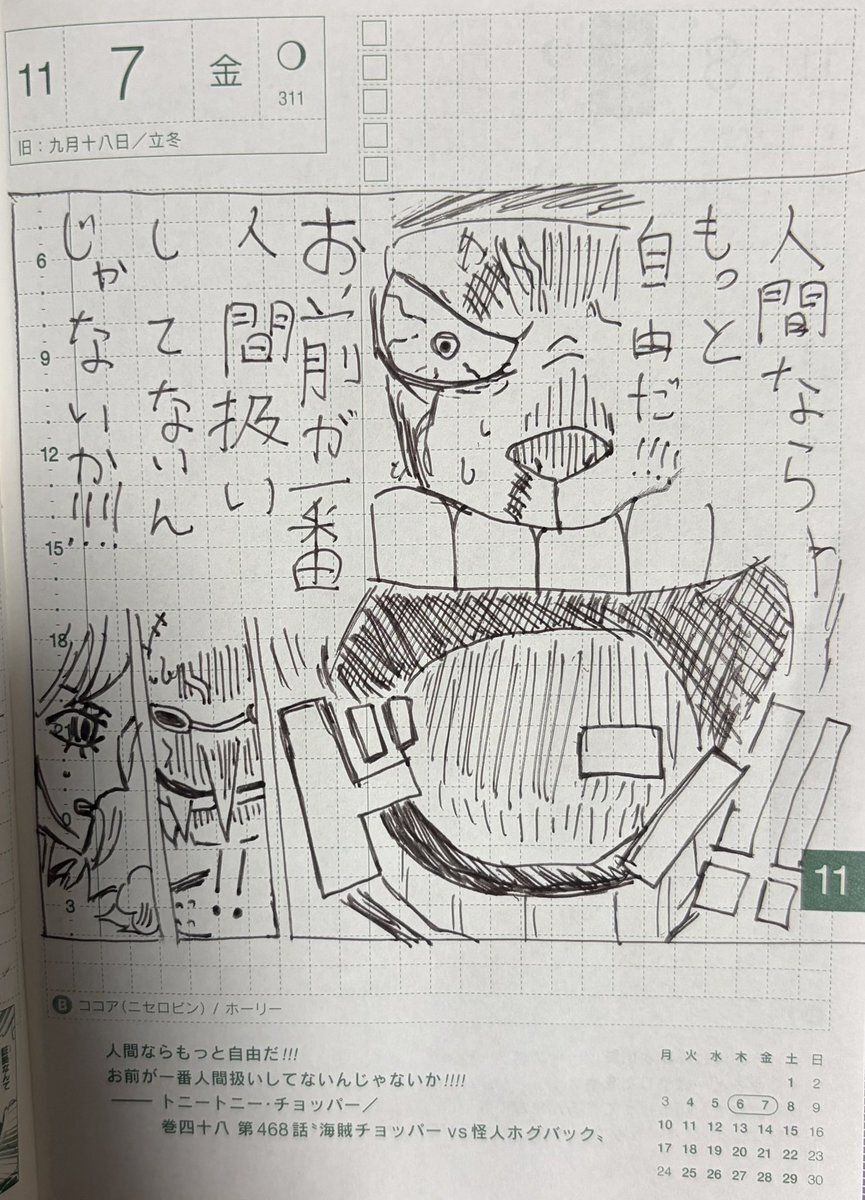 11 7 金 311
旧：九月十八日／立冬
人間なら
もっと
自由だ!!!
お前が一番
人間扱い
してないん
じゃないか!!!!
6
9
12
15
18
21
0
3
!!
11
B ココア（ニセロビン）/ ホーリー
人間ならもっと自由だ!!!
お前が一番人間扱いしてないんじゃないか!!!!
――トニートニー・チョッパー／
巻四十八 第468話〝海賊チョッパー vs 怪人ホグバック〟
月 火 水 木 金 土 日
1 2
3 4 5 6 7 8 9
10 11 12 13 14 15 16
17 18 19 20 21 22 23
24 25 26 27 28 29 30